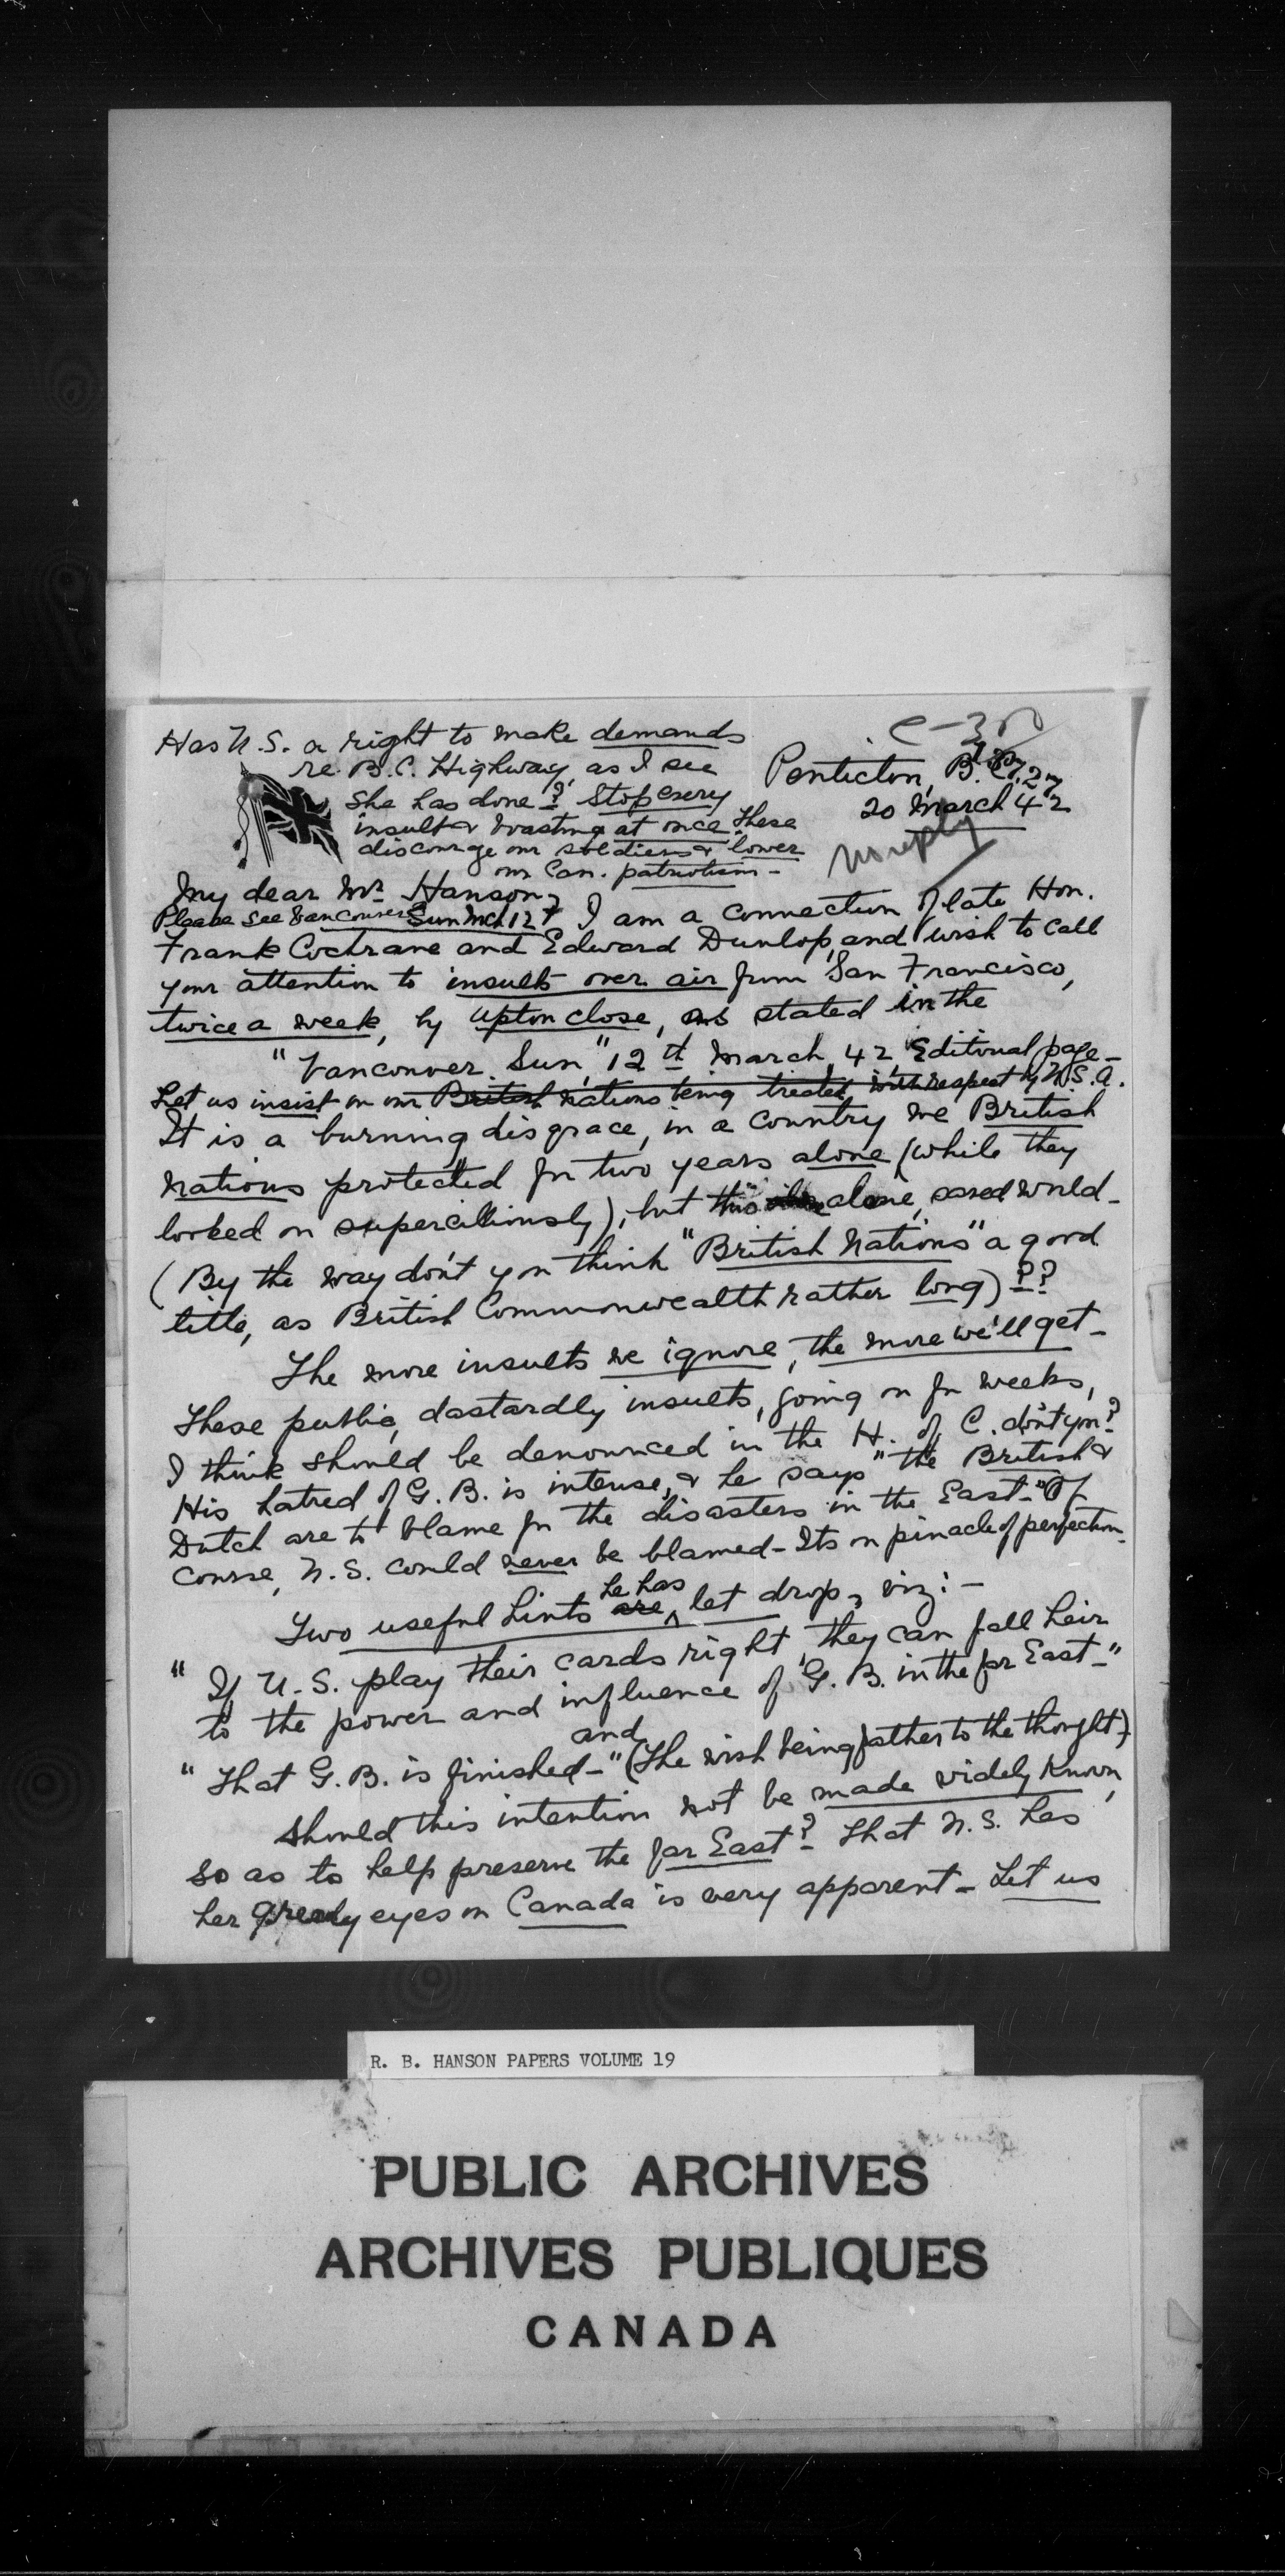 Has U.S. a right to make demands
re. B.C. Highway, as I see
she has done? Stop every
insult & boasting at once. These
discourage our soldiers & lower
our Can. patriotism -
C-30
Penticton, B.C.,
20 March 42
No reply
My dear Mr Hanson,
Please see Vancouver Sun Mch 12th
I am a connection of late Hon.
Frank Cochrane and Edward Dunlop, and wish to call
your attention to insults over air from San Francisco,
twice a week, by Upton Close, as stated in the
"Vancouver Sun," 12th March, 42 Editorial page -
Let us insist on our British Nations being treated with respect by U.S.A.
It is a burning disgrace, in a country we British
Nations protected for two years alone (while they
looked on superciliously), but this alone, saved world -
(By the way don't you think "British Nations" a good
title, as British Commonwealth rather long)??
The more insults we ignore, the more we'll get -
These public, dastardly insults, going on for weeks,
I think should be denounced in the H. of C. don't you?
His hatred of G.B. is intense, & he says "the British &
Dutch are to blame for the disasters in the East." Of
course, U.S. could never be blamed - Its on pinacle of perfection.
Two useful hints are he has let drop, viz: -
"If U.S. play their cards right, they can fall heir
to the power and influence of G.B. in the far East -"
and
"That G.B. is finished -" (The wish being father to the thought)
Should this intention not be made widely known,
so as to help preserve the far East? That U.S. has
her greedy eyes on Canada is very apparent - Let us
R. B. HANSON PAPERS VOLUME 19
PUBLIC ARCHIVES
ARCHIVES PUBLIQUES
CANADA